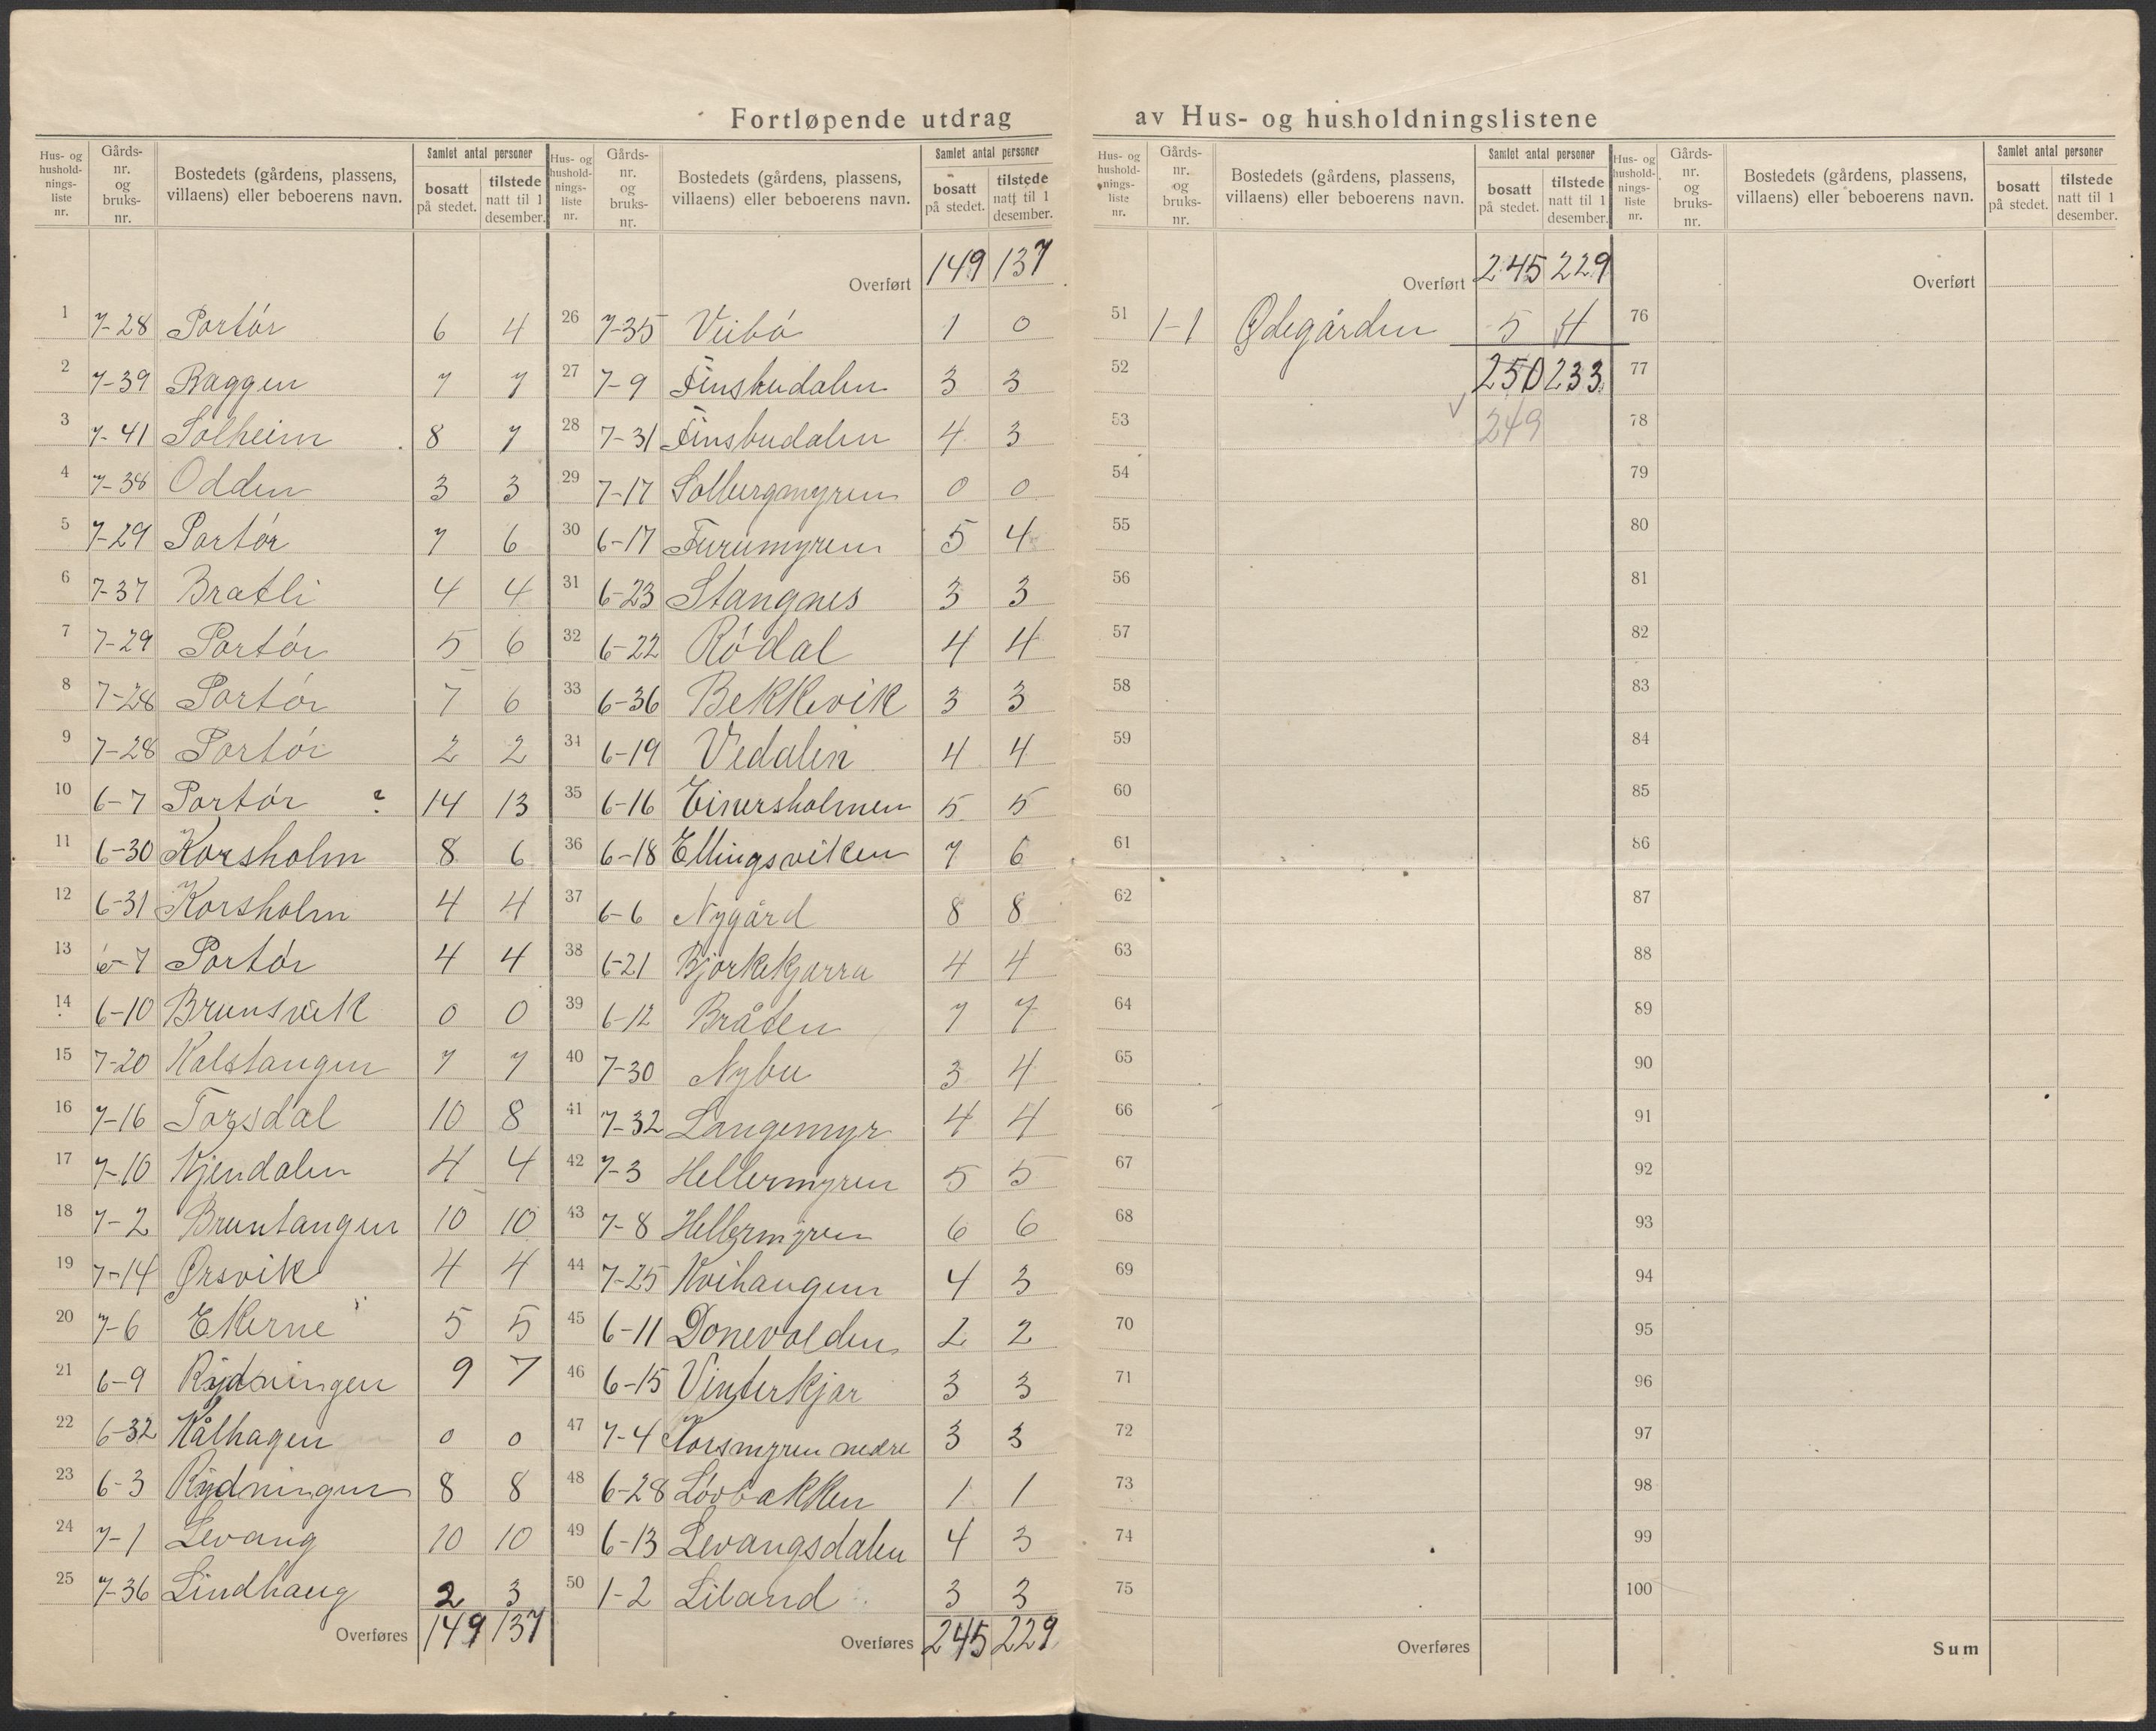 Fortløpende utdrag av Hus- og husholdningslistene
Hus- og hushold- nings- liste nr.
Gårds- nr. og bruks- nr.
Bostedets (gårdens, plassens, villaens) eller beboerens navn.
Samlet antal personer
bosatt på stedet.
tilstede natt til 1 desember.
1 7-28 Portør 6 4
2 7-39 Baggen 7 7
3 7-41 Solheim 8 7
4 7-38 Odden 3 3
5 7-29 Portør 7 6
6 7-37 Bratli 4 4
7 7-29 Portør 5 6
8 7-28 Portør 7 6
9 7-28 Portør 2 2
10 6-7 Portør ? 14 13
11 6-30 Korsholm 8 6
12 6-31 Korsholm 4 4
13 6-7 Portór 4 4
14 6-10 Brunsvik 0 0
15 7-20 Kalstangen 7 7
16 7-16 Torsdal 10 8
17 7-10 Kjendalen 4 4
18 7-2 Bruntangen 10 10
19 7-14 Ørsvik 4 4
20 7-6 Ekerne 5 5
21 6-9 Rydningen 9 7
22 6-32 Kålhagen 0 0
23 6-3 Rydningen 8 8
24 7-1 Levang 10 10
25 7-36 Lindhaug 2 3
Overføres 149 137
Hus- og hushold- nings- liste nr.
Gårds- nr. og bruks- nr.
Bostedets (gårdens, plassens, villaens) eller beboerens navn.
Samlet antal personer
bosatt på stedet.
tilstede natt til 1 desember.
Overført 149 137
26 7-35 Veibó 1 0
27 7-9 Finsbudalen 3 3
28 7-31 Finsbudalen 4 3
29 7-17 Solbergmyren 0 0
30 6-17 Furumyren 5 4
31 6-23 Stangnes 3 3
32 6-22 Ródal 4 4
33 6-36 Bekkevik 3 3
34 6-19 Vedalen 4 4
35 6-16 Einersholmen 5 5
36 6-18 Ellingsviken 7 6
37 6-6 Nygård 8 8
38 6-21 Bjorkekjarra 4 4
39 6-12 Bråten 7 7
40 7-30 Nybu 3 4
41 7-32 Langemyr 4 4
42 7-3 Hellermyren 5 5
43 7-8 Hellermyren 6 6
44 7-25 Kvihaugen 4 3
45 6-11 Donevolden 2 2
46 6-15 Vinterkjar 3 3
47 7-4 Korsmyren nedre 3 3
48 6-28 Lóvbakken 1 1
49 6-13 Levangsdalen 4 3
50 1-2 Liland 3 3
Overføres 245 229
Hus- og hushold- nings- liste nr.
Gårds- nr. og bruks- nr.
Bostedets (gårdens, plassens, villaens) eller beboerens navn.
Samlet antal personer
bosatt på stedet.
tilstede natt til 1 desember.
Overført 245 229
51 1-1 Ødegården 5 4
52 250 233
53 √ 249
54
55
56
57
58
59
60
61
62
63
64
65
66
67
68
69
70
71
72
73
74
75
Overføres
Hus- og hushold- nings- liste nr.
Gårds- nr. og bruks- nr.
Bostedets (gårdens, plassens, villaens) eller beboerens navn.
Samlet antal personer
bosatt på stedet.
tilstede natt til 1 desember.
Overført
76
77
78
79
80
81
82
83
84
85
86
87
88
89
90
91
92
93
94
95
96
97
98
99
100
Sum